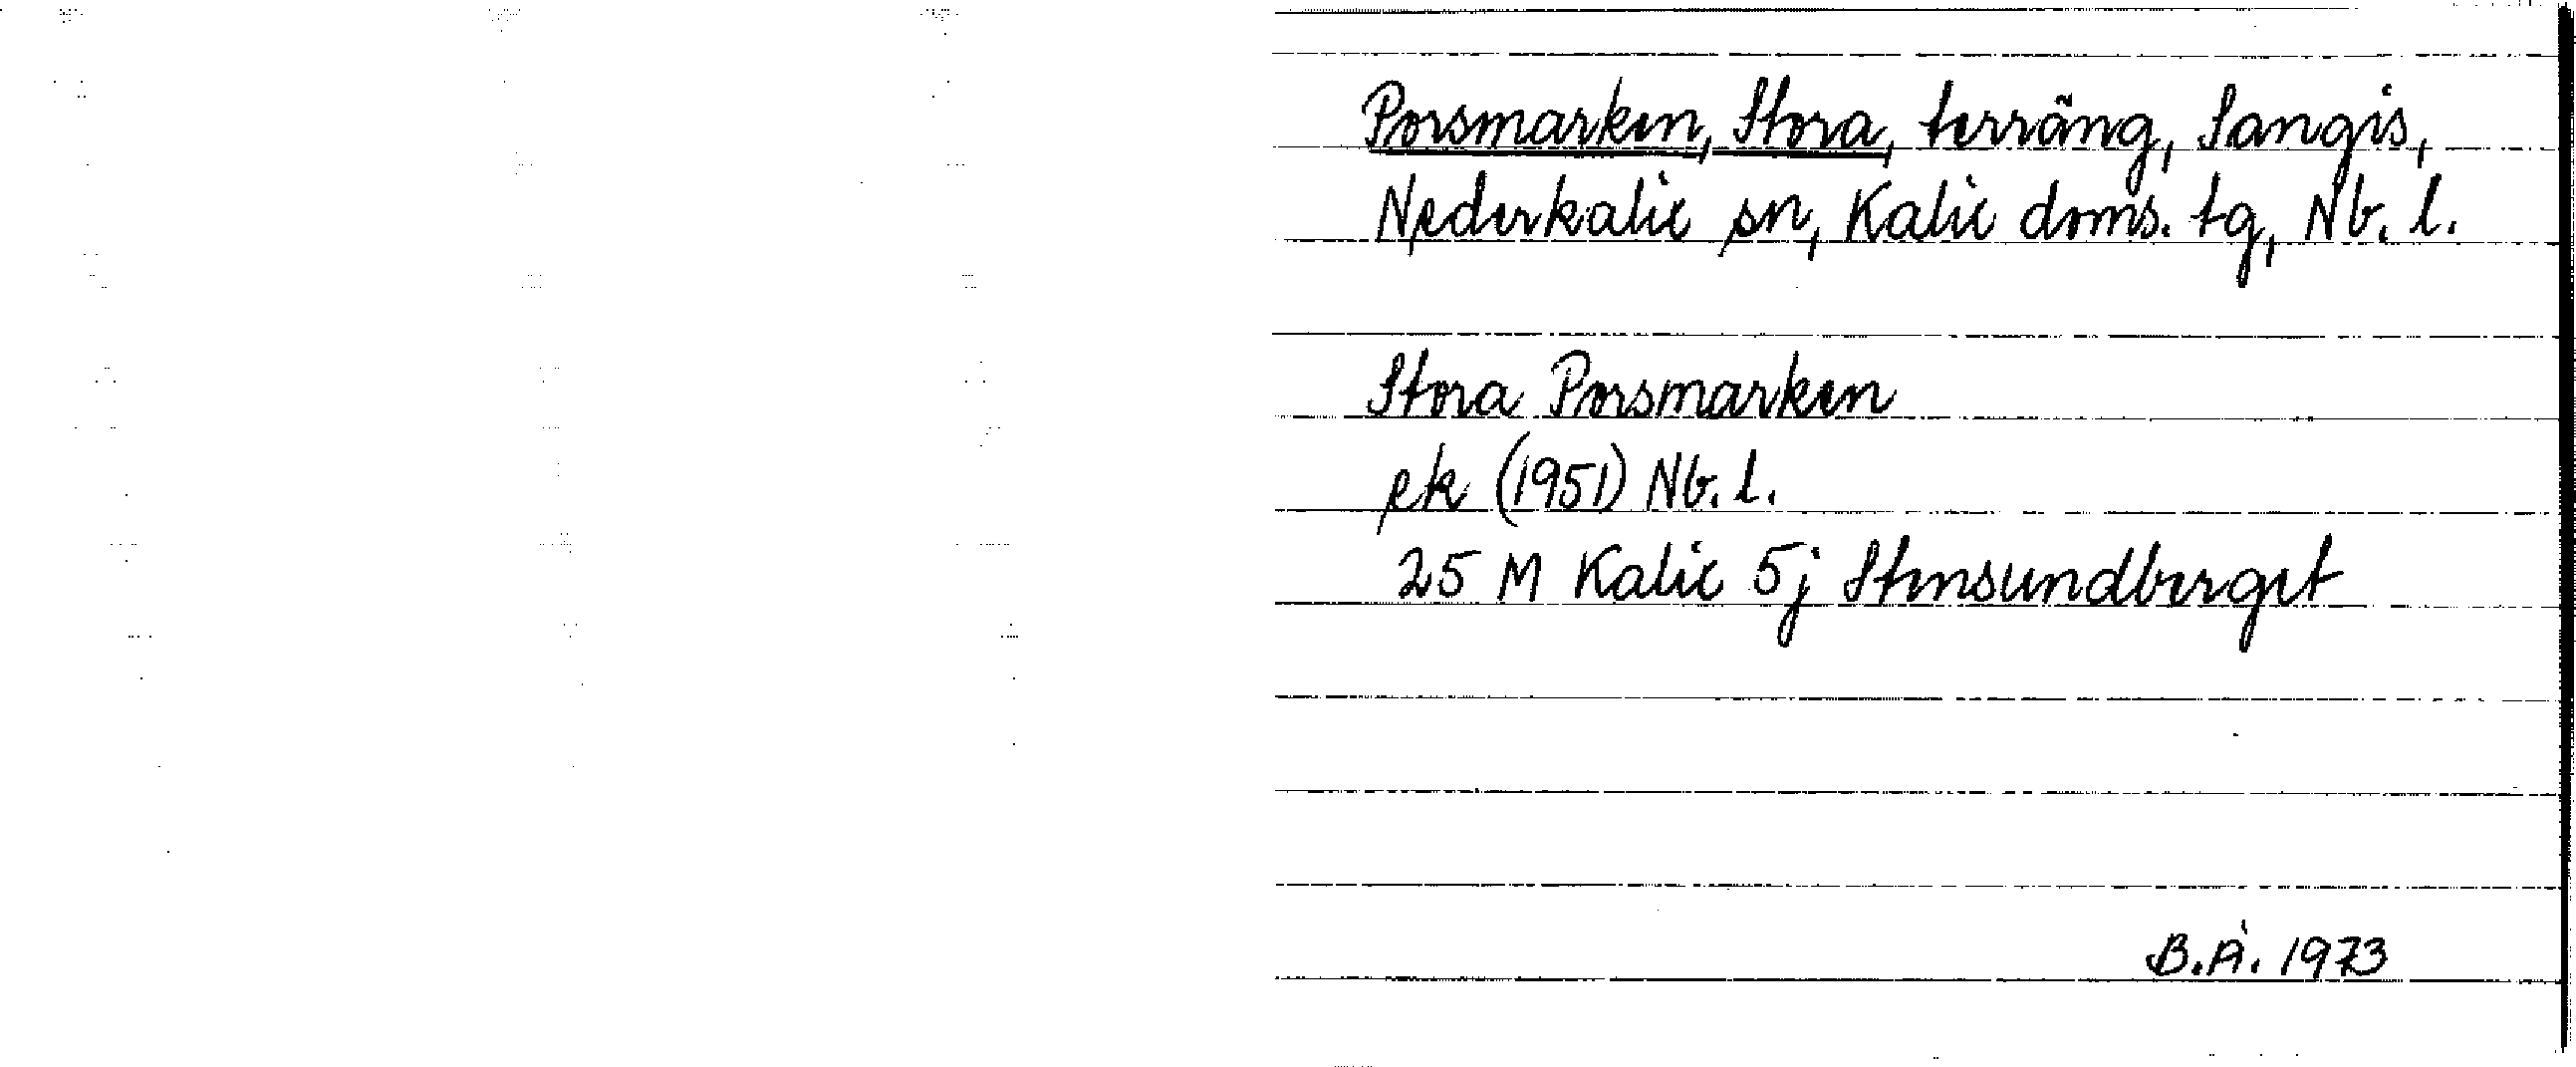 Porsmarken, Stora, terräng, Sangis,
Nederkalix sn, Kalix doms. tg, Nb. l.
Stora Porsmarken
ek (1951) Nb. l.
25 M Kalix 5j Stensundberget
B.Å. 1973